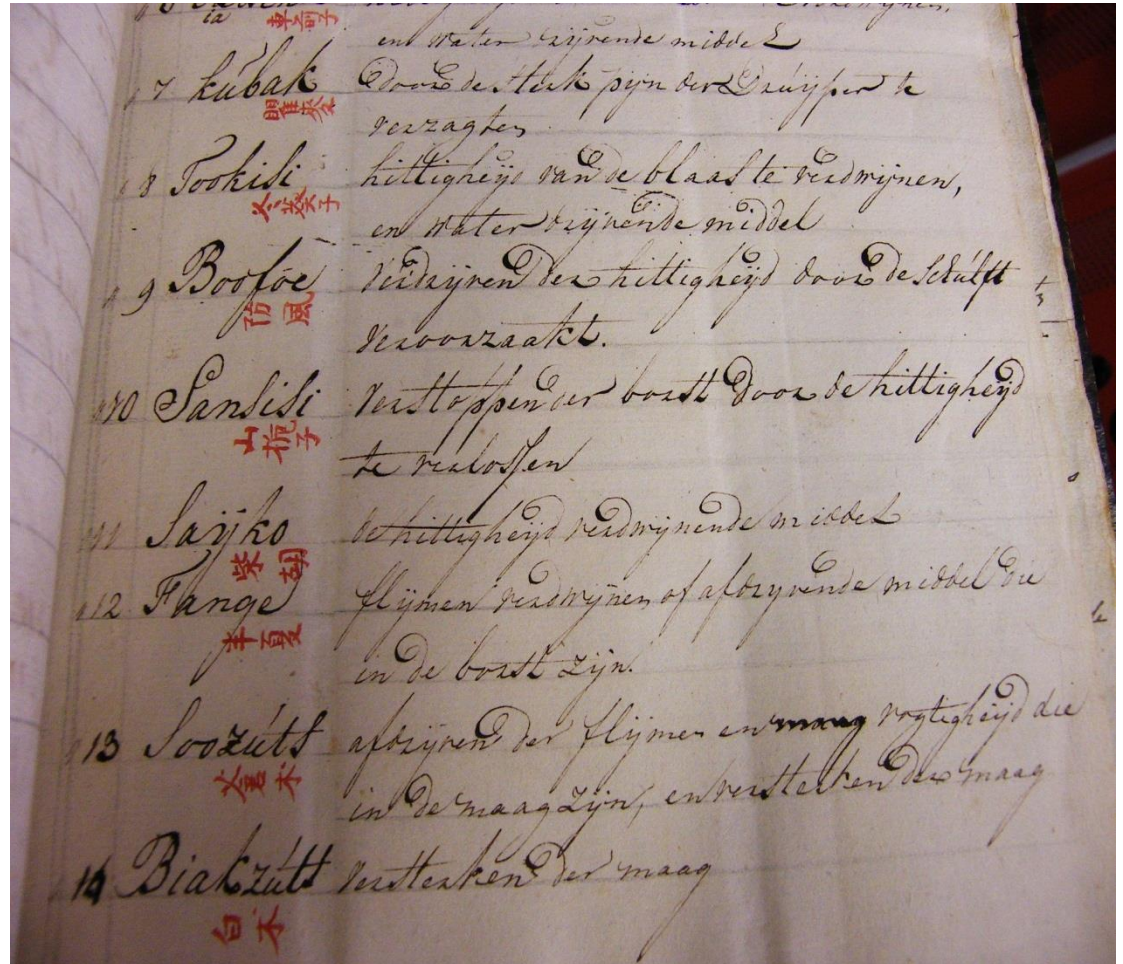 車前子
en water
middel
7 kúbak door de sterk pijn der Druijper te
瞿麥
verzagten
8 Tookisi hittigheijd van de blaas te verdwijnen,
冬葵子
en water drijvende middel
9 Boofoe verdrijven der hittigheijd door de Schúlft
防風
veroorzaakt.
10 Sansisi verstoppen der borst door de hittigheijd
山梔子
te verlossen
11 Saijko de hittigheijd verdwijnende middel
柴胡
12 Fange flijmen verdwijnen of afdryvende middel die
半夏
in de borst zijn.
13 Soozúts afdrijven der flijmen en vogtigheijd die
蒼朮
in de maag zijn, en versterken der maag
14 Biakzúts versterken der maag
白朮